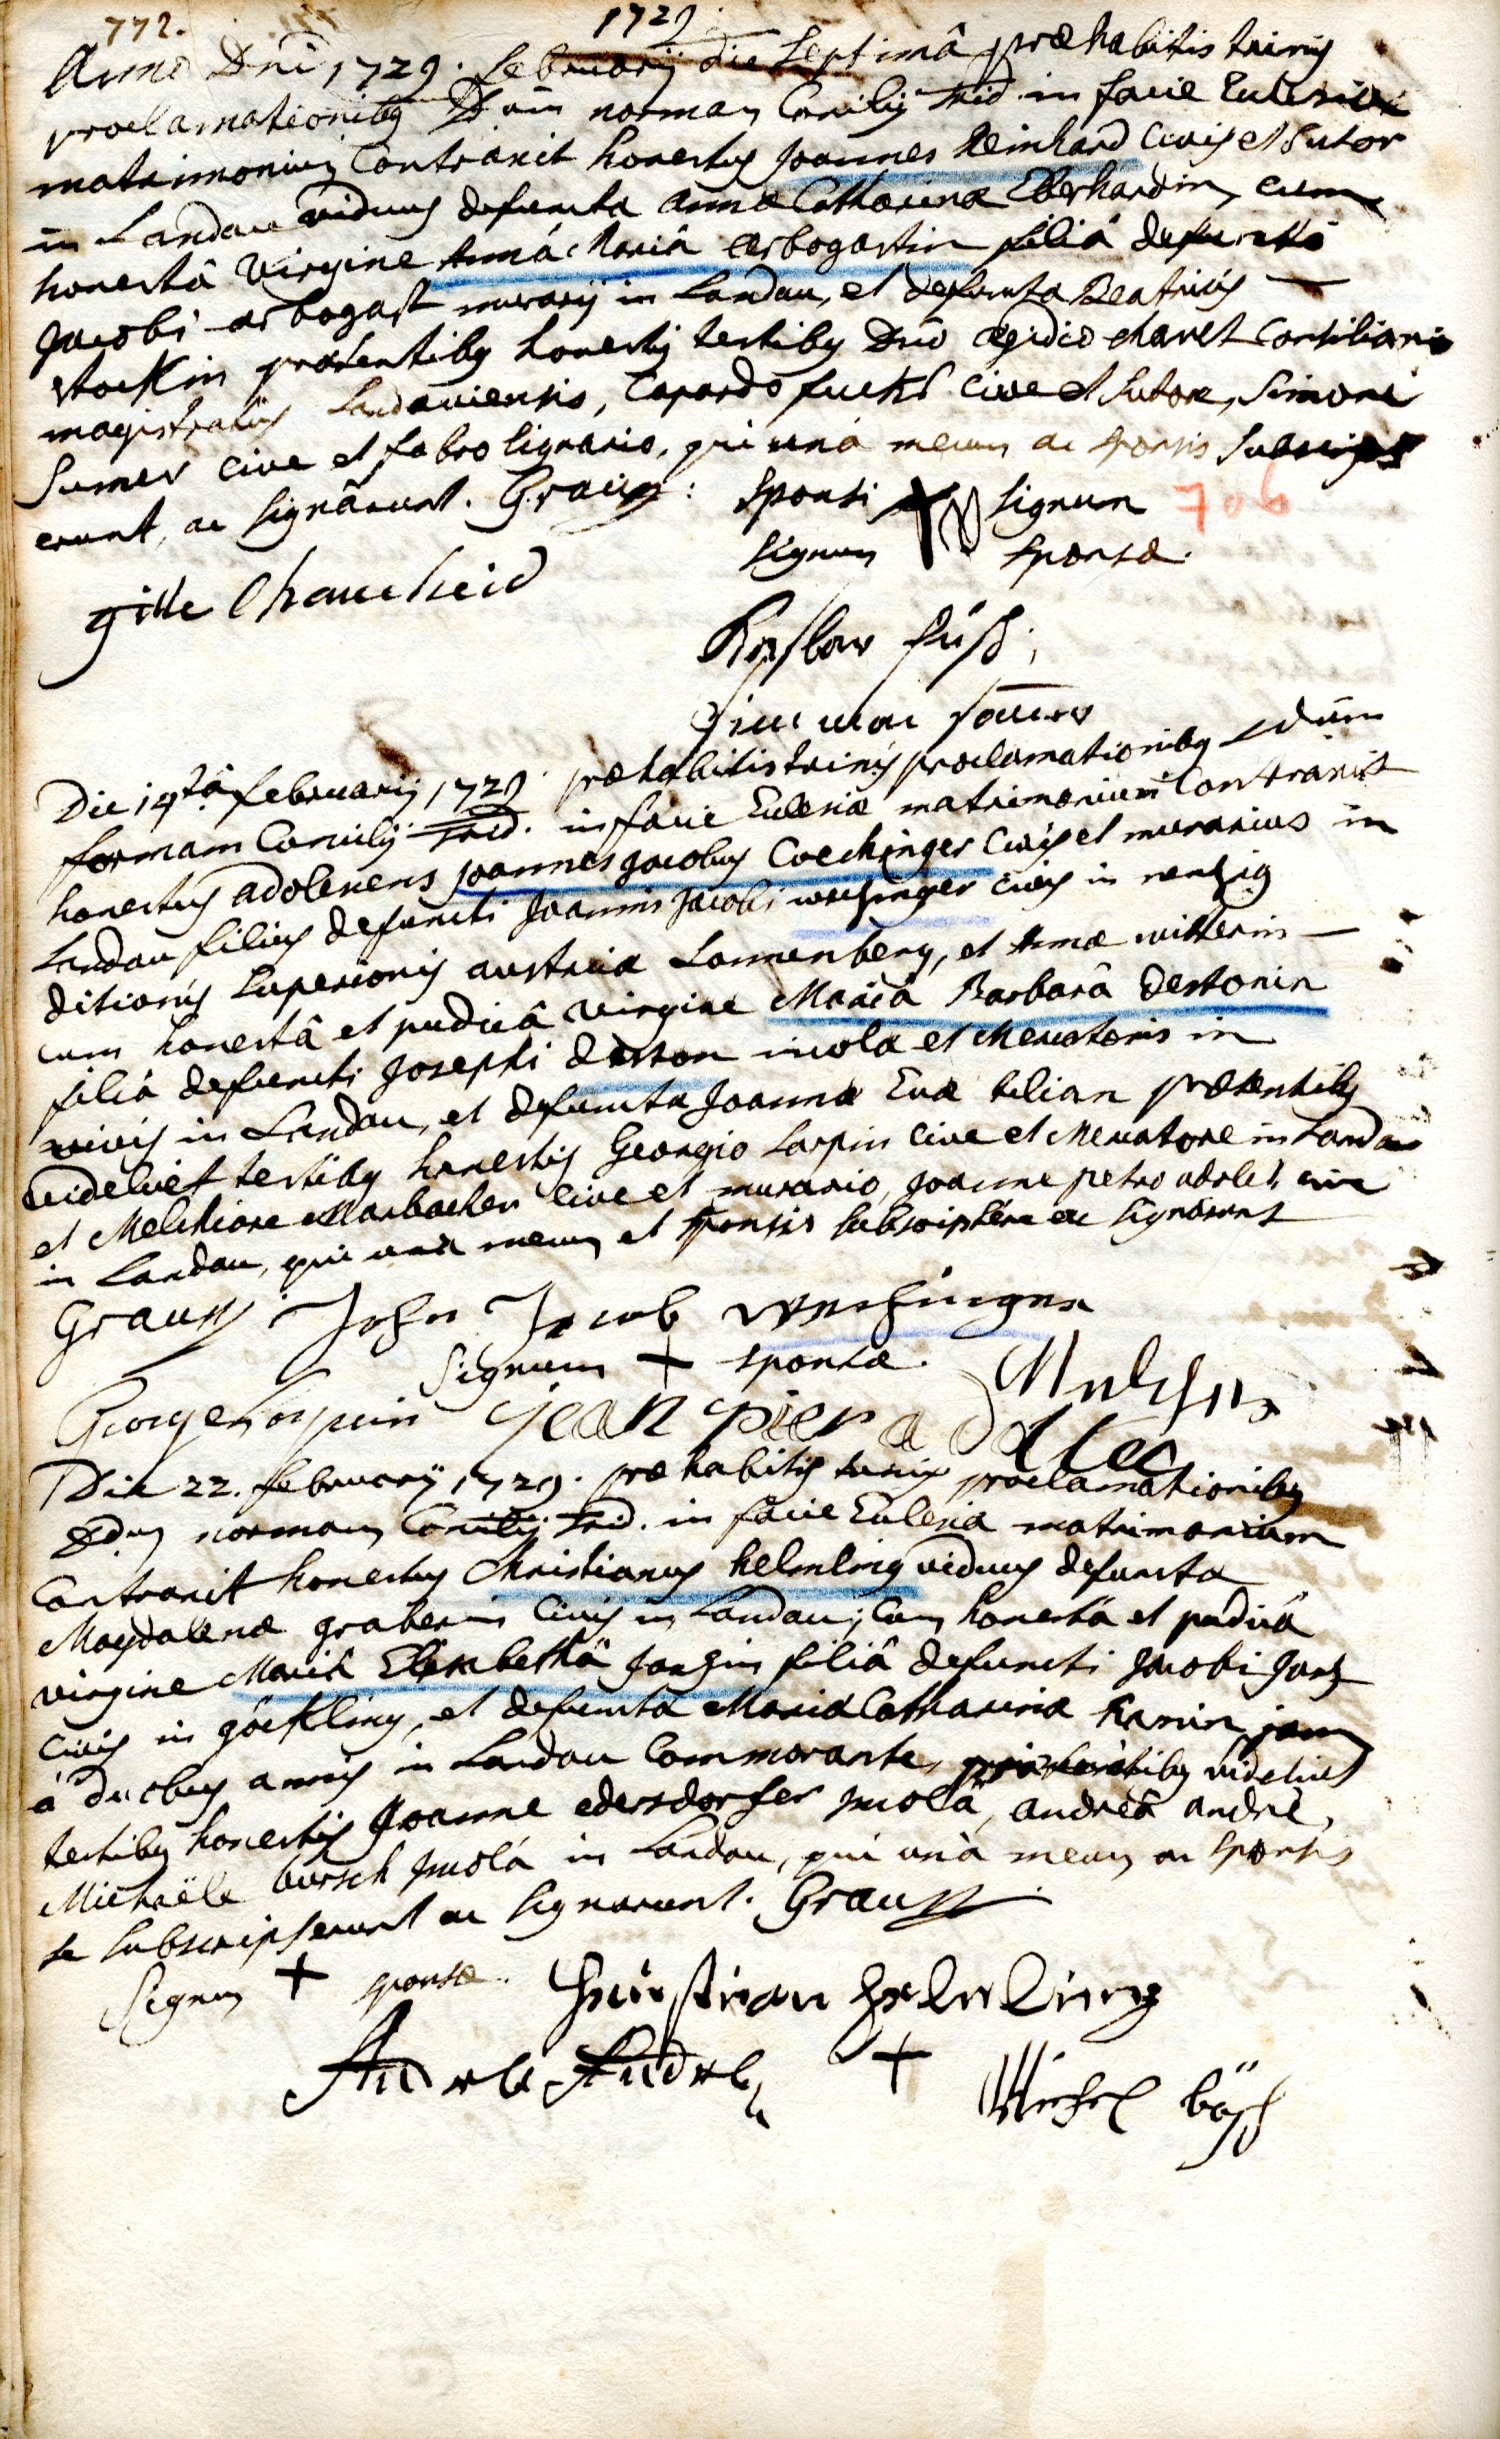 772.
1729.
Anno Dni 1729. februarij die septimâ præhabitis trinis
proclamationibg Dum normam Concilij Trid. in facie Ecclesiæ
matrimonium contraxit honestus Joannes Reinhard Civis et Sutor
in Landau viduus defuncta Annæ Catharinæ Eberhardin, cum
honestâ Virgine Annâ Mariâ Arbogastin filiâ defuncti
Jacobi arbogast murarij in Landau, et defuncta Beatricis
Stockin præsentibg honestis testibg Dnô Ægidio chavet Consiliario
magistratus Landaviensis, Caspardo fuchs cive et sutore, Simone
Sumer cive et fabro lignario, qui unâ mecum ac sponsis subscrips
erunt, ac signârunt. Grauss:
Sponsi signum
706
signum sponsæ.
gille Chaucheid
Kasbar füsch
Die 14tâ februarij 1729. præhabitis trinis proclamationibg Sedum
formam Concilij Trid. in facie Ecclesiæ matrimonium contraxit
honestus adolescens Joannes Jacobus Wechinger Civis et murarius in
Landau filius defuncti Joannis Jacobi wechinger civis in nenzig
ditionis superioris austriæ Sonnenberg, et Annæ witterin
cum honestâ et pudicâ virgine Mariâ Barbarâ Destonin
filiâ defuncti Josephi deston incola et Mercatoris in
vivis in Landau, et defuncta Joannæ Evæ kilian præsentibg
videlicet testibg honestis Georgio Larpin cive et Mercatore in Landau
et Melchiore Marbacher cive et murario, Joanne petro adolet cive
in Landau, qui una mecum et sponsis subscripsêre ac signârunt
Grauss Johan Jacob wechinger
Signum + sponsæ.
George Lorpuin Jean pier adolle
Die 22. februarij 1729. præhabitis trinis proclamationibg
Sedum normam Concilij Trid. in facie Ecclesia matrimonium
Contraxit honestus Christianus helmling viduus defuncta
Magdalenæ graberin Civis in Landau; Cum honestâ et pudicâ
virgine Mariâ Elisabethâ Janzin filiâ defuncti Jacobi Janz
civis in göckling, et defuncta Maria Catharina hanin, jam
â duobus annis in Landau Commorante, præsentibg videlicet
testibg honestis Joanne edersdorfer incolâ, andreâ andrê,
Michaële bursch incolâ in Landau, qui unâ mecum ac sponsis
se subscripserunt ac signarunt. Grauss.
Signum + sponsæ. Christian helmling
Andrele Andrel + Michel büsch